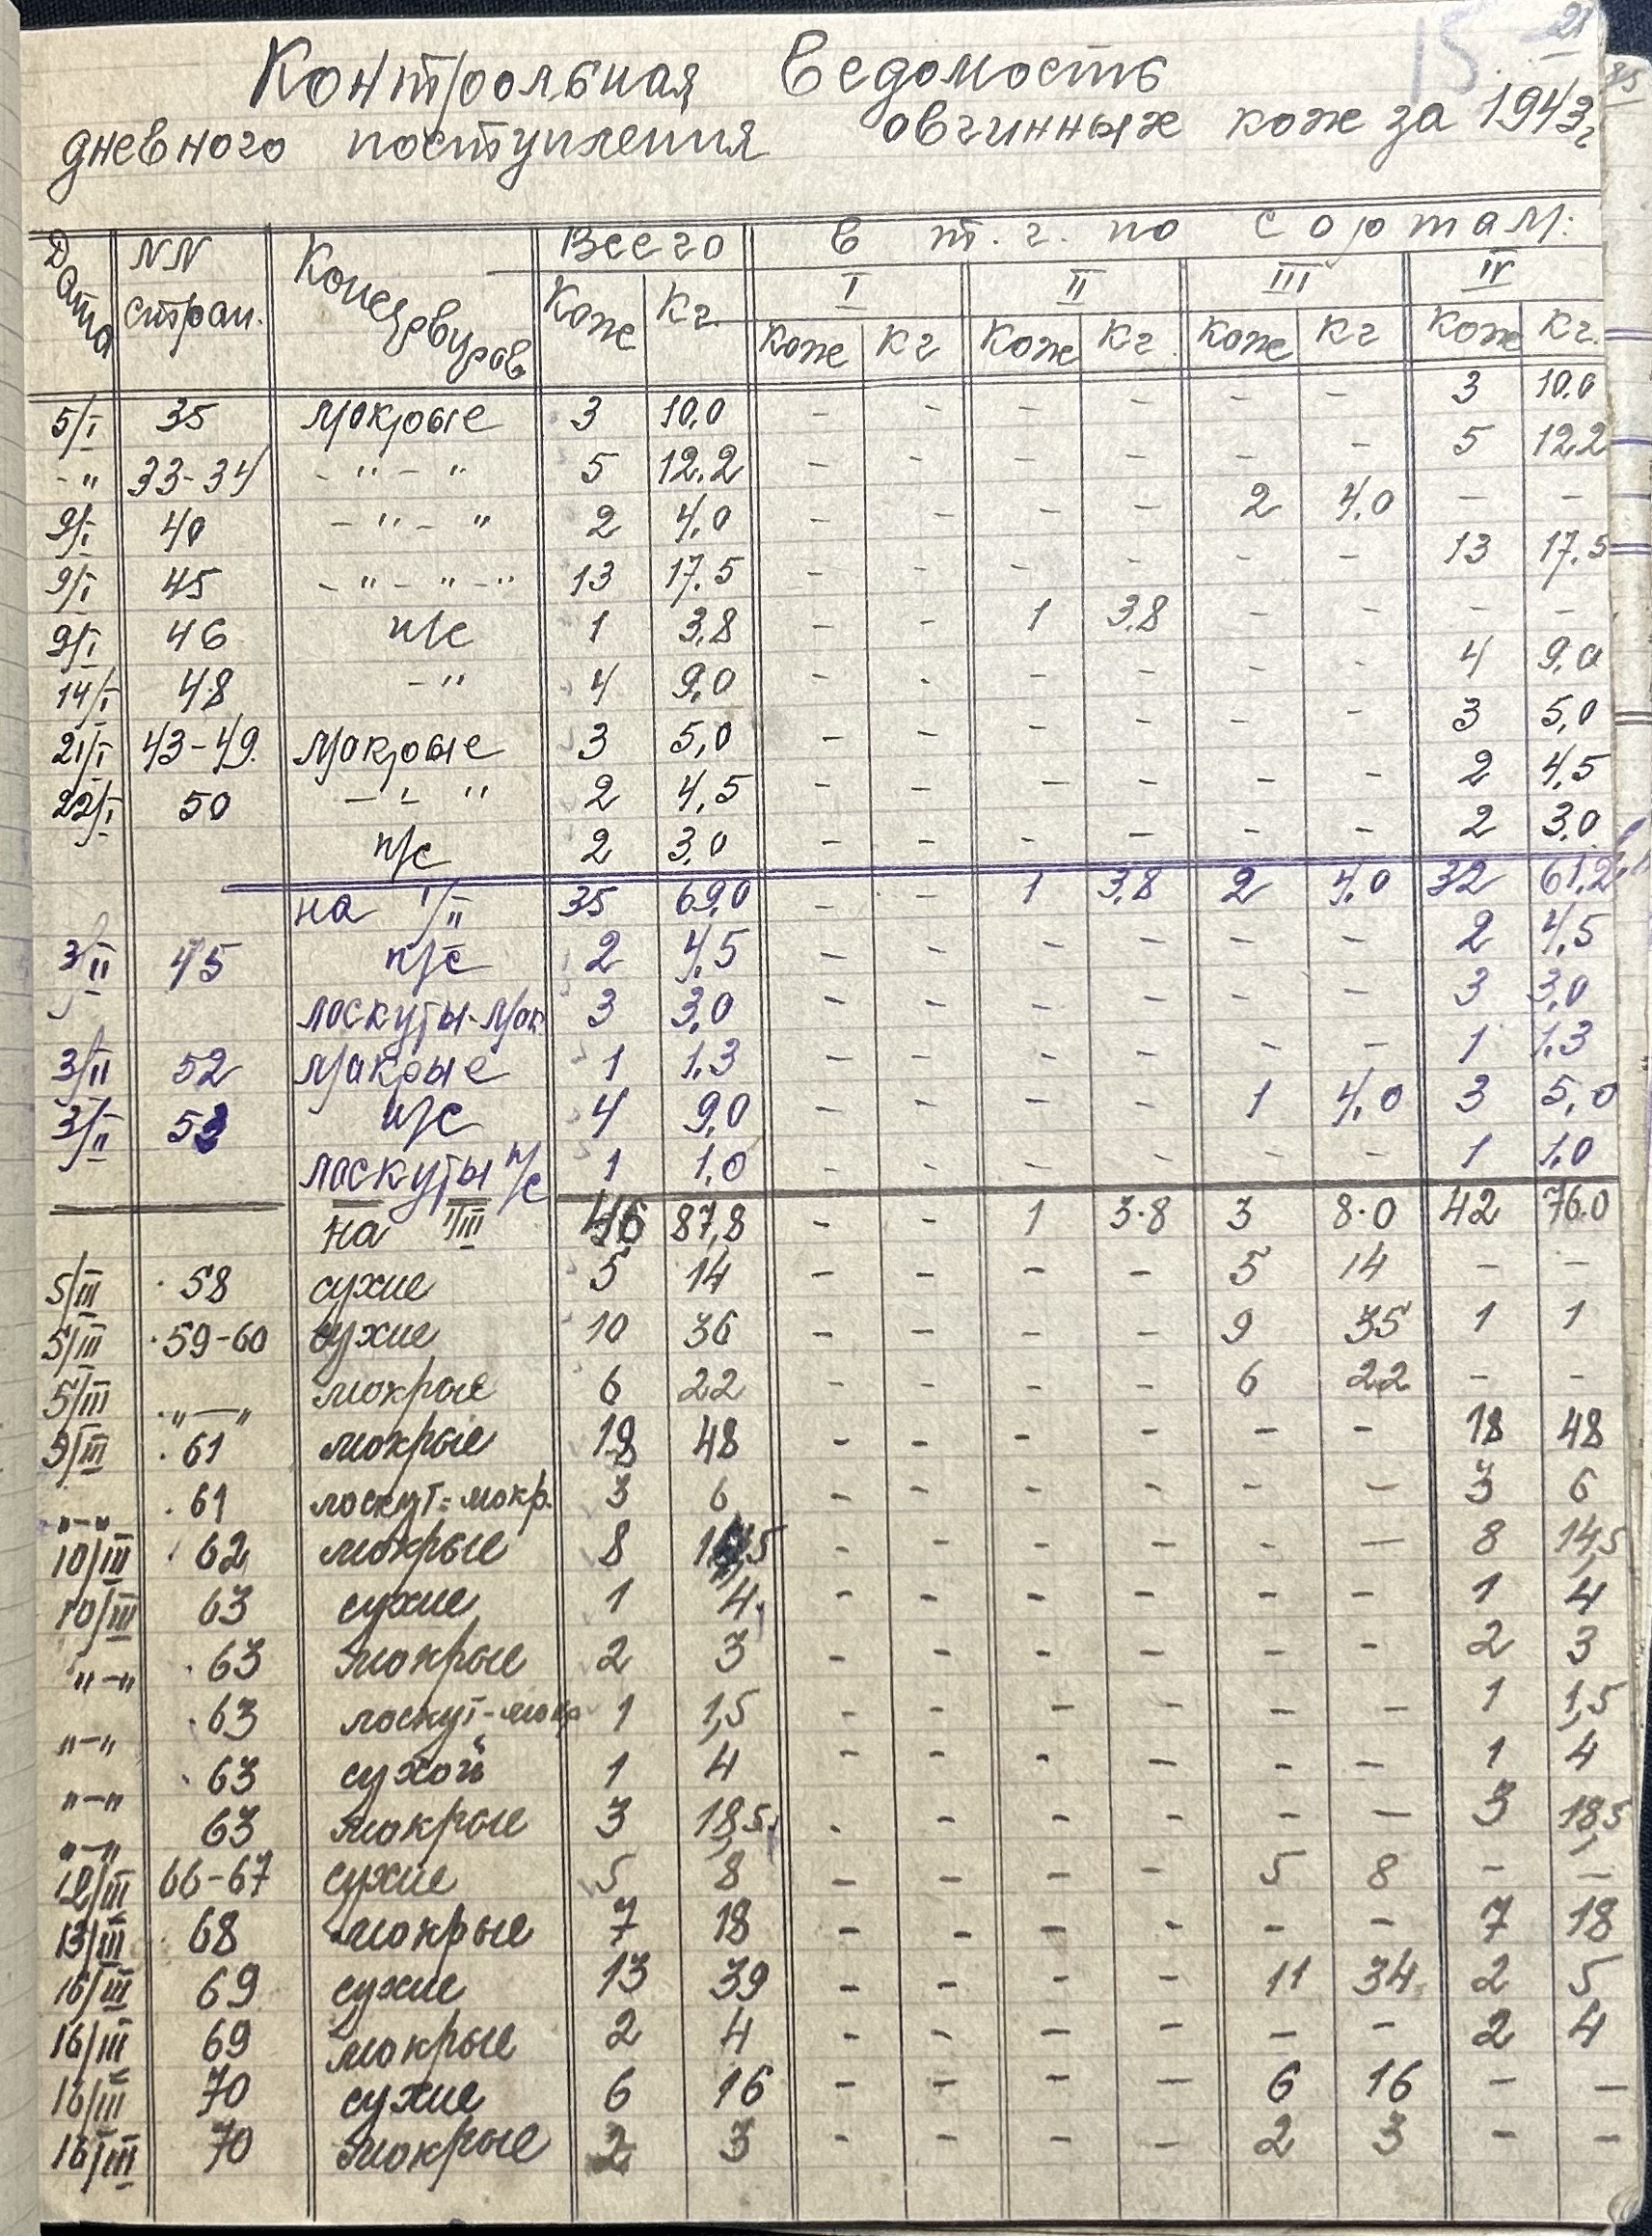 21
15
Контрольная Ведомость
дневного поступления овчинных кож за 1943 г
Дата NN стран. Консервиров Всего в т. г. по сортам:
I II III IV
Кож Кг. Кож Кг Кож Кг. Кож Кг Кож Кг.
5/I 35 мокрые 3 10,0 - - - - - - 3 10,0
-" 33-34 -"-" 5 12.2 - - - - - - 5 12,2
9/I 40 -"-" 2 4,0 - - - - 2 4,0 - -
9/I 45 -"-"-" 13 17.5 - - - - - - 13 17.5
9/I 46 п/с 1 3,8 - - 1 3,8 - - - -
14/I 48 -" 4 9,0 - - - - - - 4 9,0
21/I 43-49. мокрые 3 5,0 - - - - - - 3 5,0
22/I 50 -"-" 2 4,5 - - - - - - 2 4,5
п/с 2 3,0 - - - - - - 2 3,0
на 1/II 35 69,0 - - 1 3,8 2 4,0 32 61,2
3/II 45 п/с 2 4,5 - - - - - - 2 4,5
лоскуты-мок 3 3,0 - - - - - - 3 3,0
3/II 52 мокрые 1 1.3 - - - - - - 1 1.3
3/II 53 п/с 4 9,0 - - - - 1 4,0 3 5,0
лоскуты п/с 1 1,0 - - - - - - 1 1,0
на 1/III 46 87,8 - - 1 3.8 3 8.0 42 76.0
5/III 58 сухие 5 14 - - - - 5 14 - -
5/III 59-60 сухие 10 36 - - - - 9 35 1 1
5/III "—" мокрые 6 22 - - - - 6 22 - -
9/III 61 мокрые 18 48 - - - - - - 18 48
"-" 61 лоскут-мокр. 3 6 - - - - - - 3 6
10/III 62 мокрые 8 14,5 - - - - - - 8 14,5
10/III 63 сухие 1 4 - - - - - - 1 4
"-" 63 мокрые 2 3 - - - - - - 2 3
"-" 63 лоскут-мокр 1 1,5 - - - - - - 1 1,5
"-" 63 сухой 1 4 - - - - - - 1 4
"-" 63 мокрые 3 18,5 - - - - - - 3 18,5
12/III 66-67 сухие 5 8 - - - - 5 8 - -
13/III 68 мокрые 7 18 - - - - - - 7 18
16/III 69 сухие 13 39 - - - - 11 34 2 5
16/III 69 мокрые 2 4 - - - - - - 2 4
16/III 70 сухие 6 16 - - - - 6 16 - -
16/III 70 мокрые 2 3 - - - - 2 3 - -